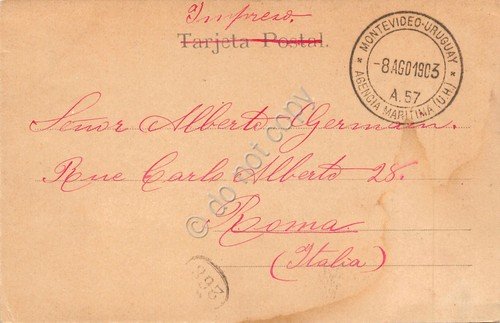 Impreso.
Tarjeta Postal.
MONTEVIDEO-URUGUAY
-8 AGO 1903
A. 57
* AGENCIA MARITIMA (U.H.) *
Señor Alberto Germán.
Rue Carlo Alberto 28.
Roma
(Italia)
© do not copy